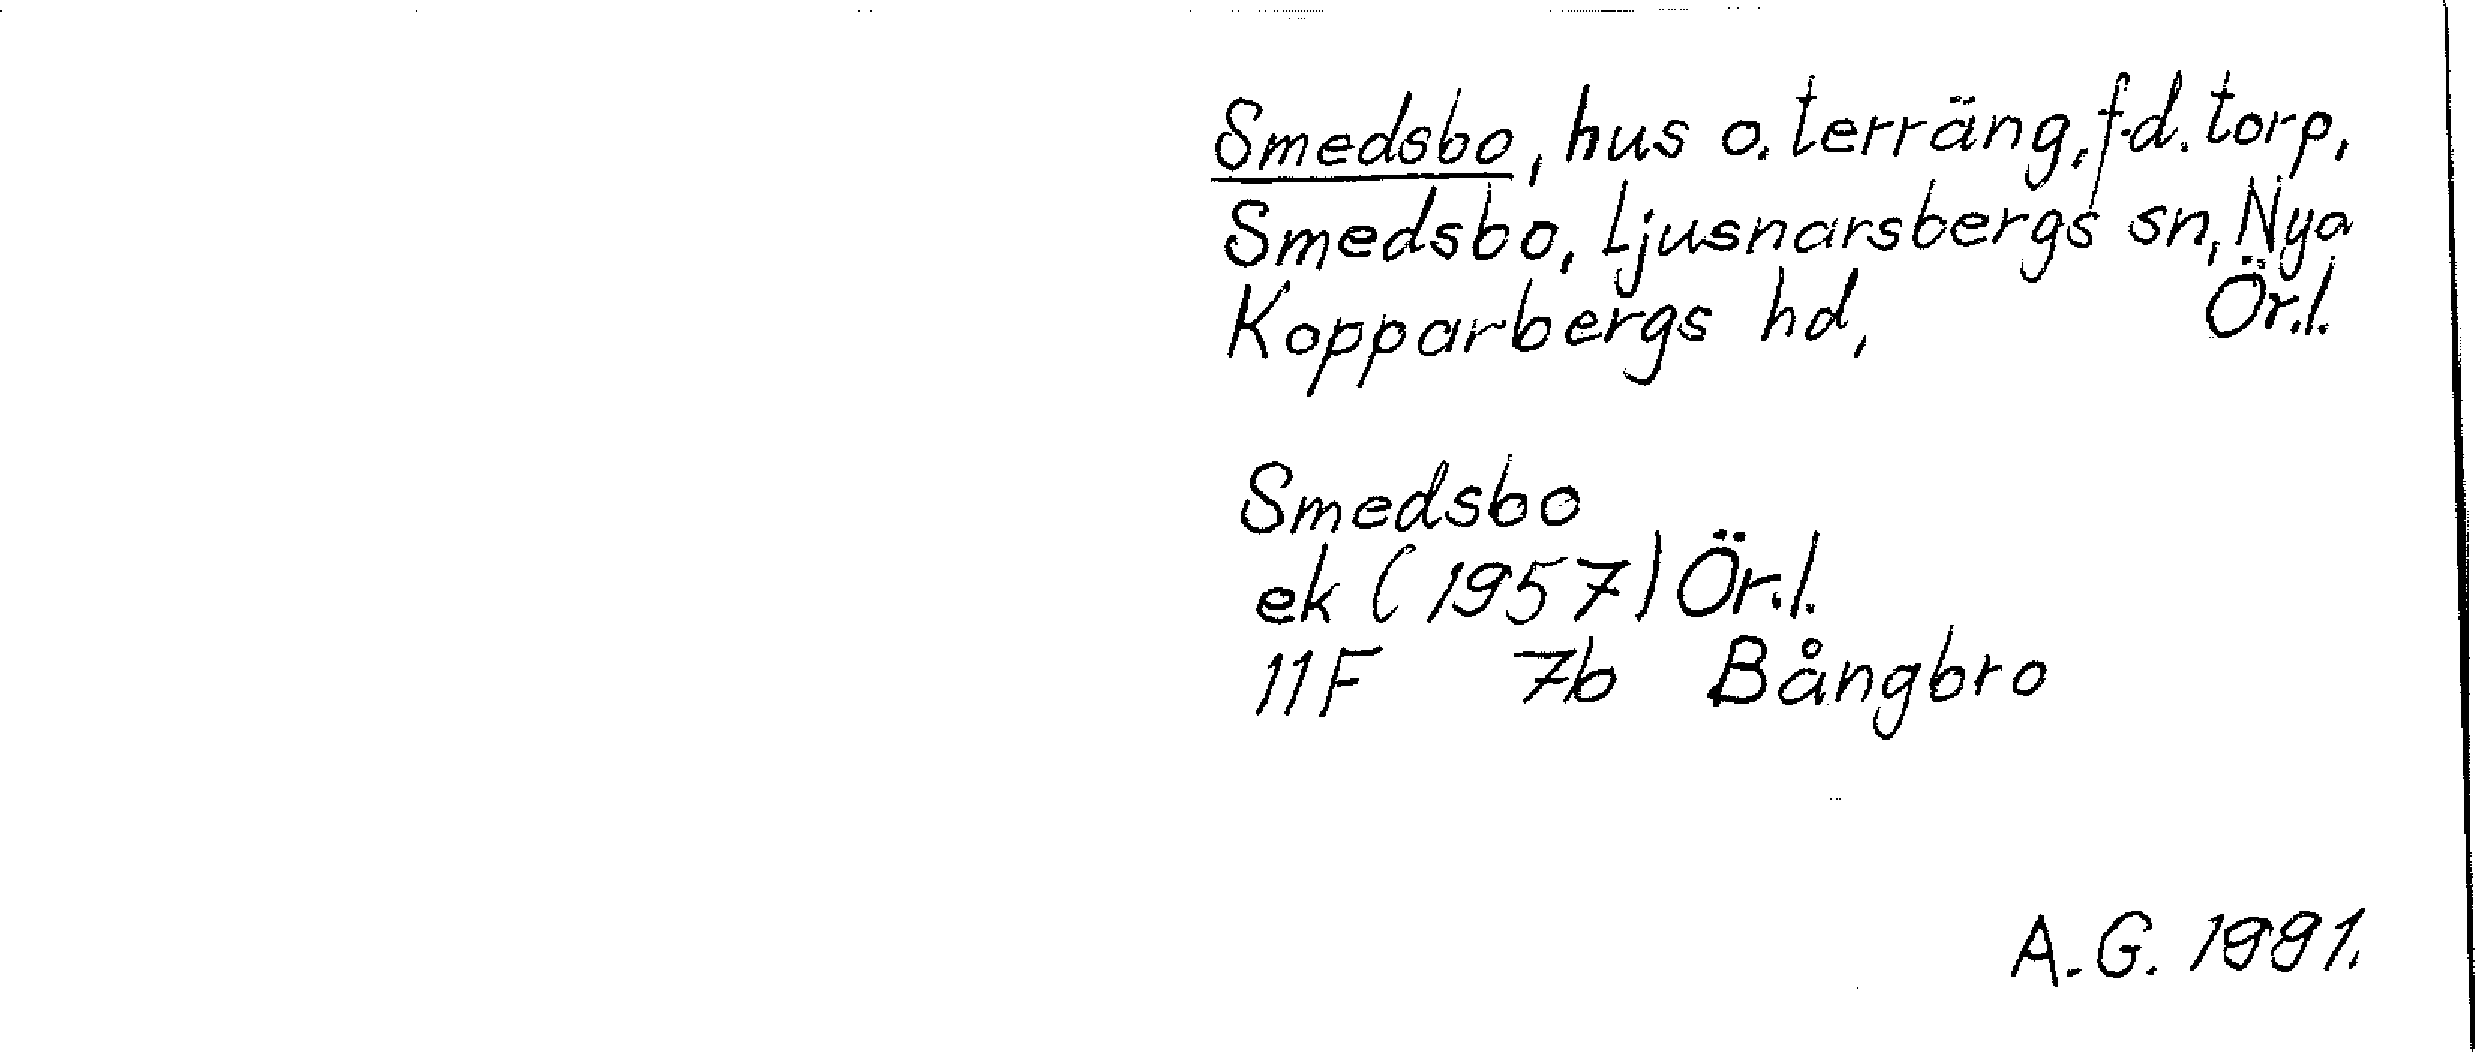 Smedsbo, hus o. terräng, f.d. torp,
Smedsbo, Ljusnarsbergs sn, Nya
Kopparbergs hd, Ör.l.
Smedsbo
ek (1957) Ör.l.
11F 7b Bångbro
A.G. 1991.